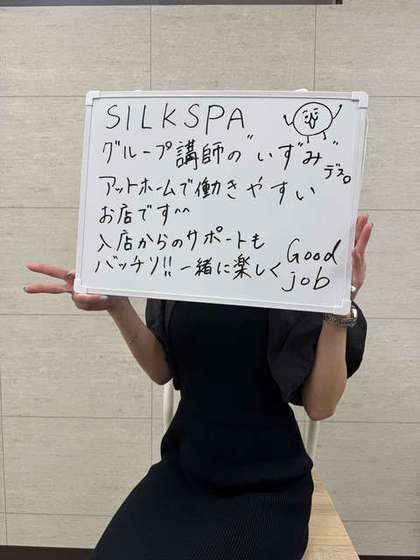 SILKSPA
グループ講師の"いずみ"
デス。
アットホームで働きやすい
お店です^^
入店からのサポートも
バッチリ!!一緒に楽しく
Good
job